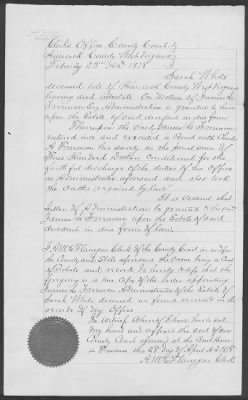 Clerks Office County Court of
Hancock County West Virginia
February 28th A.D. 1878
Sarah White
deceased late of Hancock County West Virginia
having died intestate. On Motion of James L.
Foreman Esq Administration is granted to him
upon the Estate of said decedent in due form
Thereupon the said James L. Foreman
entered into and executed a Bond with
A Foreman his surety in the penal sum of
Five Hundred Dollars Conditioned for the
faithful discharge of the duties of his Office
as Administrator aforesaid and also took
the Oaths required by Law
It is ordered that
Letters of Administration be granted to the said
James L. Foreman upon the Estate of said
decedent in due form of Law
I A.W.C. Flanegan Clerk of the County Court in and for
the County and State aforesaid the same being a Court
of Probate and record do hereby certify that the
foregoing is a true copy of the Order appointing
James L. Foreman Administrator of the Estate of
Sarah White deceased as found recorded in the
records of my Office
In witness whereof I have hereto set
my hand and affixed the seal of our
County Court aforesaid at the Court House
in Fairview this 28 day of A.D. 1878
Flanegan Clerk